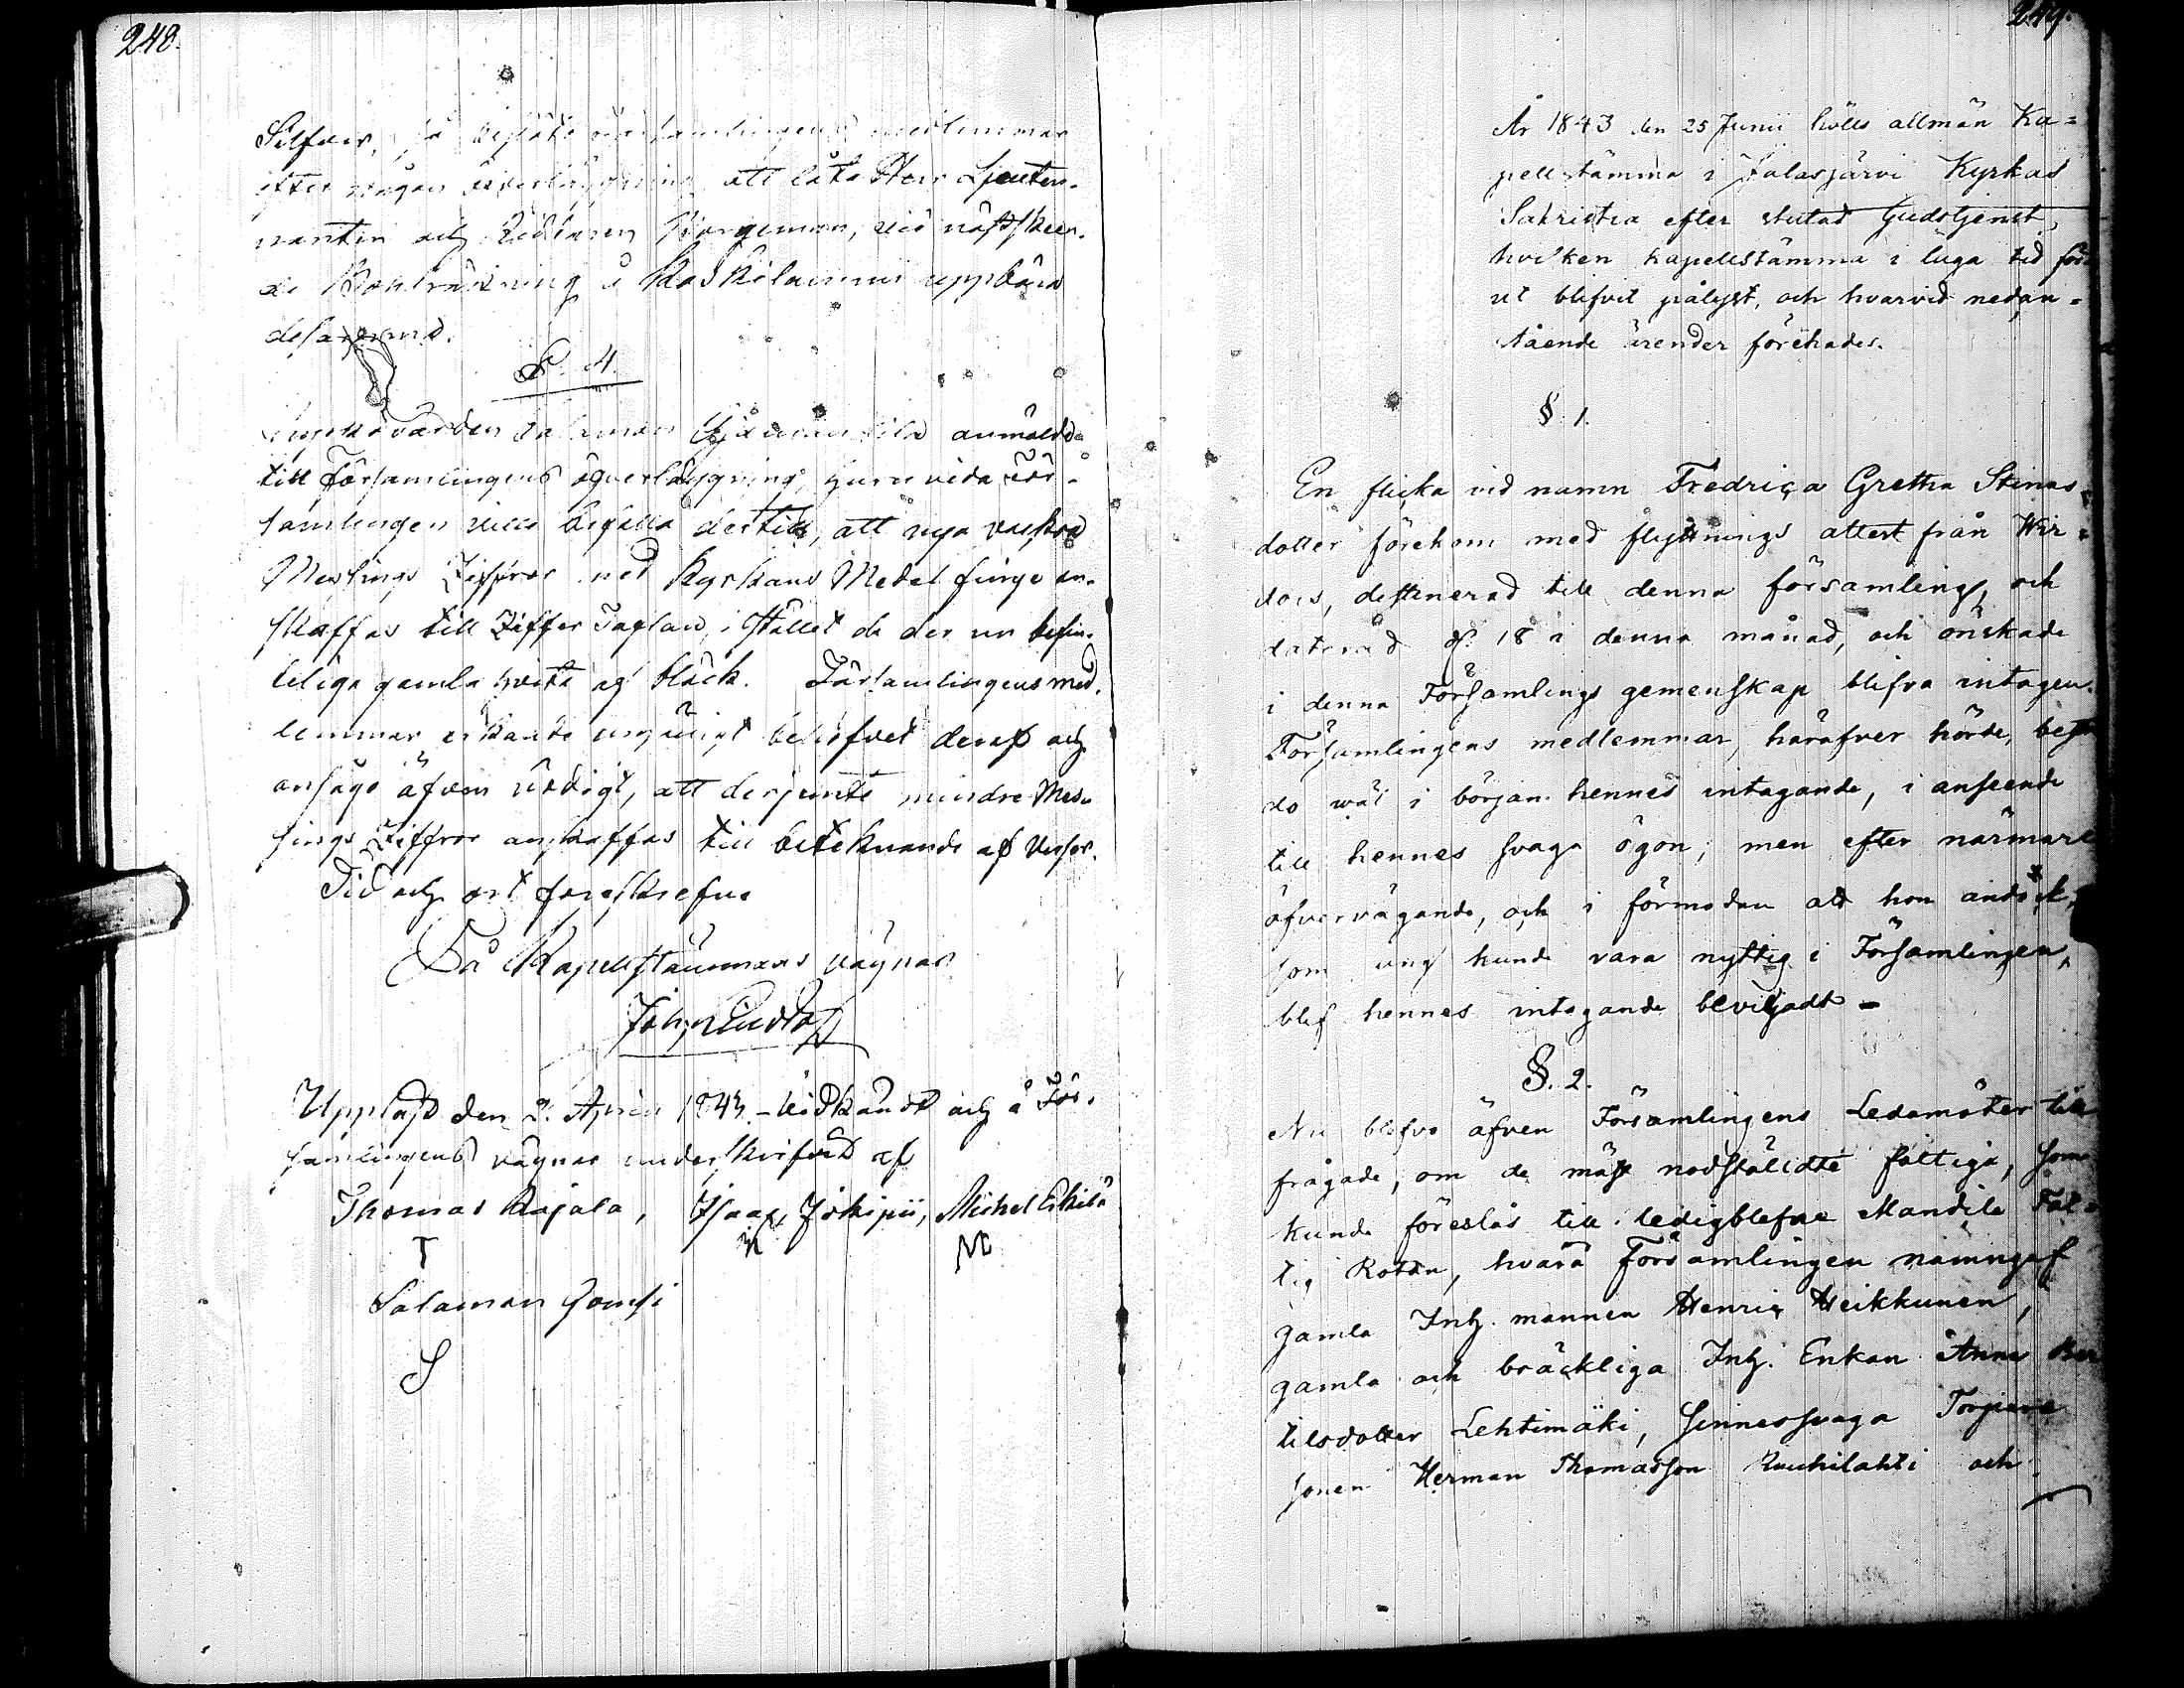 248.
Silfver, så  församlingens medlemmar
efter någon öfverläggning att låta Herr Lieuten-
nanten och Riddaren Bergeman, vid näst skeen-
de  å Koskilammi uppbära
§. 4.
Kyrkovärden Salomon  anmälde
till Församlingens öfverläggning, huruvida För-
samlingen ville bifalla dertill, att nya vackra
Messings Ziffror med Kyrkans Medel finge an-
skaffas till Ziffer Taflan, i stället de der nu befin-
teliga gamla hvita af bläck. Församlingens med-
lemmar erkände  behofvet deraf och
ansågo äfven nödigt, att derjemte mindre Mes-
sings Ziffror anskaffas till betecknande af verser.
Tid och ort föreskrefne
På Kapellstämmans vägnar
Upplast den 2. April 1843 - vidkändt och å För-
samlingens vägnar underskrifvid af
Thomas Rajala, Isaac Jokipii, Michel Eskilä
T M
Salamon Jomsi
S
249.
År 1843 den 25 Junii hölls allmän Ka=
pellstämma i Jalasjärvi Kyrkas
Sakristia efter slutad Gudstjenst,
hvilken kapellstämma i laga tid för-
ut blifvit pålyst, och hvarvid nedan=
stående ärender förehades.
§. 1.
En flicka vid namn Fredrica Gretha Stinas
dotter förekom med flyttnings attest från Wir=
dois, destinerad till denna församling, och
daterad d. 18 i denna månad, och önskade
i denna Församlings gemenskap blifva intagen.
Församlingens medlemmar, häröfver hörde, bestri
do wäl i början hennes intagande, i anseende
till hennes svaga ögon; men efter närmare
öfvervägande, och i förmodan att hon ändock,
som ung kunde vara nyttig i Församlingen,
blef hennes intagande beviljadt -
§. 2.
Nu blefvo äfven Församlingens Ledamöter till
frågade, om de mäst nödstäldte fattiga, som
kunde föreslås till ledigblefne Mandila Fat=
tig Rotan, hvara Församlingen nämngaf
gamla Inh. mannen Henric Heikkunen,
gamla och bräckliga Inh. Enkan Anna Ber
tilsdotter Lehtimäki, sinnessvaga Torpare
sonen Herman Thomasson Rauhilahti och